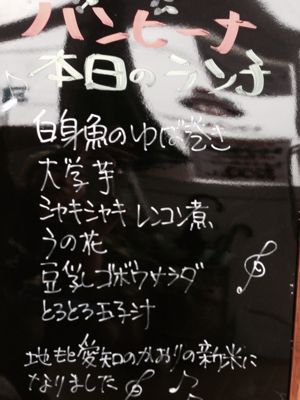 パンピーナ
本日のランチ
白身魚のゆば巻き
大学芋
シャキシャキレンコン煮
うの花
豆乳ゴボウサラダ
とろとろ玉子汁
地もと愛知のかおりの新米に
なりました